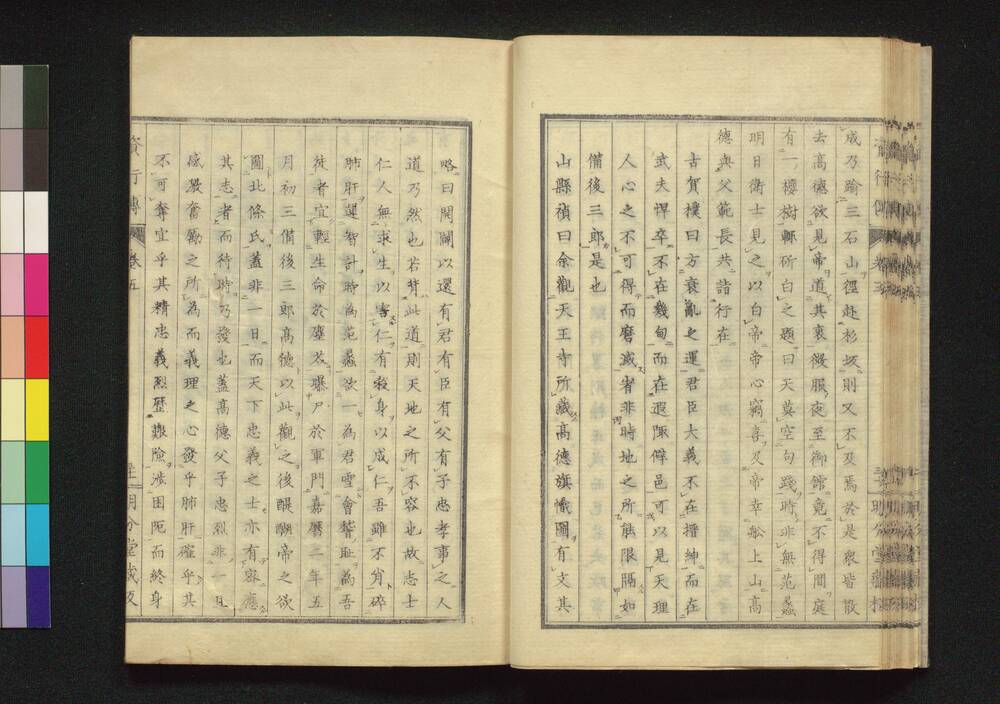 成乃踰三石山徑赴杉坂則又不及焉於是衆皆散
去高德欲見帝道其衷微服夜至御館竟不得間庭
有一櫻樹輒斫白之題曰天莫空句踐時非無范蠡
明日衛士見之以白帝帝心竊喜及帝幸舩上山高
德與父範長共詣行在
古賀樸曰方衰亂之運君臣大義不在搢紳而在
武夫悍卒不在幾甸而在遐陬僻邑可以見天理
人心之不可得而磨滅者非時地之所能限隔如
備後三郎是也
山縣禎曰余觀天王寺所藏高德旗幟圖有文其
略曰開闢以還有君有臣有父有子忠孝事之人
道乃然也若背此道則天地之所不容也故志士
仁人無求生以害仁有殺身以成仁吾雖不肖碎
肺肝運智計時為范蠡欲一為君雪會稽耻為吾
徒者宜輕生命於塵芥曝尸於軍門嘉曆二年五
月初三備後三郎高德以此觀之後醍醐帝之欲
圖北條氏蓋非一日而天下忠義之士亦有密應
其志者而待時乃發也蓋高德父子忠烈非一旦
感激奮勵之所為而義理之心發乎肺肝確乎其
不可奪宜乎其精忠義烈歷艱險涉困阨而終身
行傳 卷五
明分堂藏板